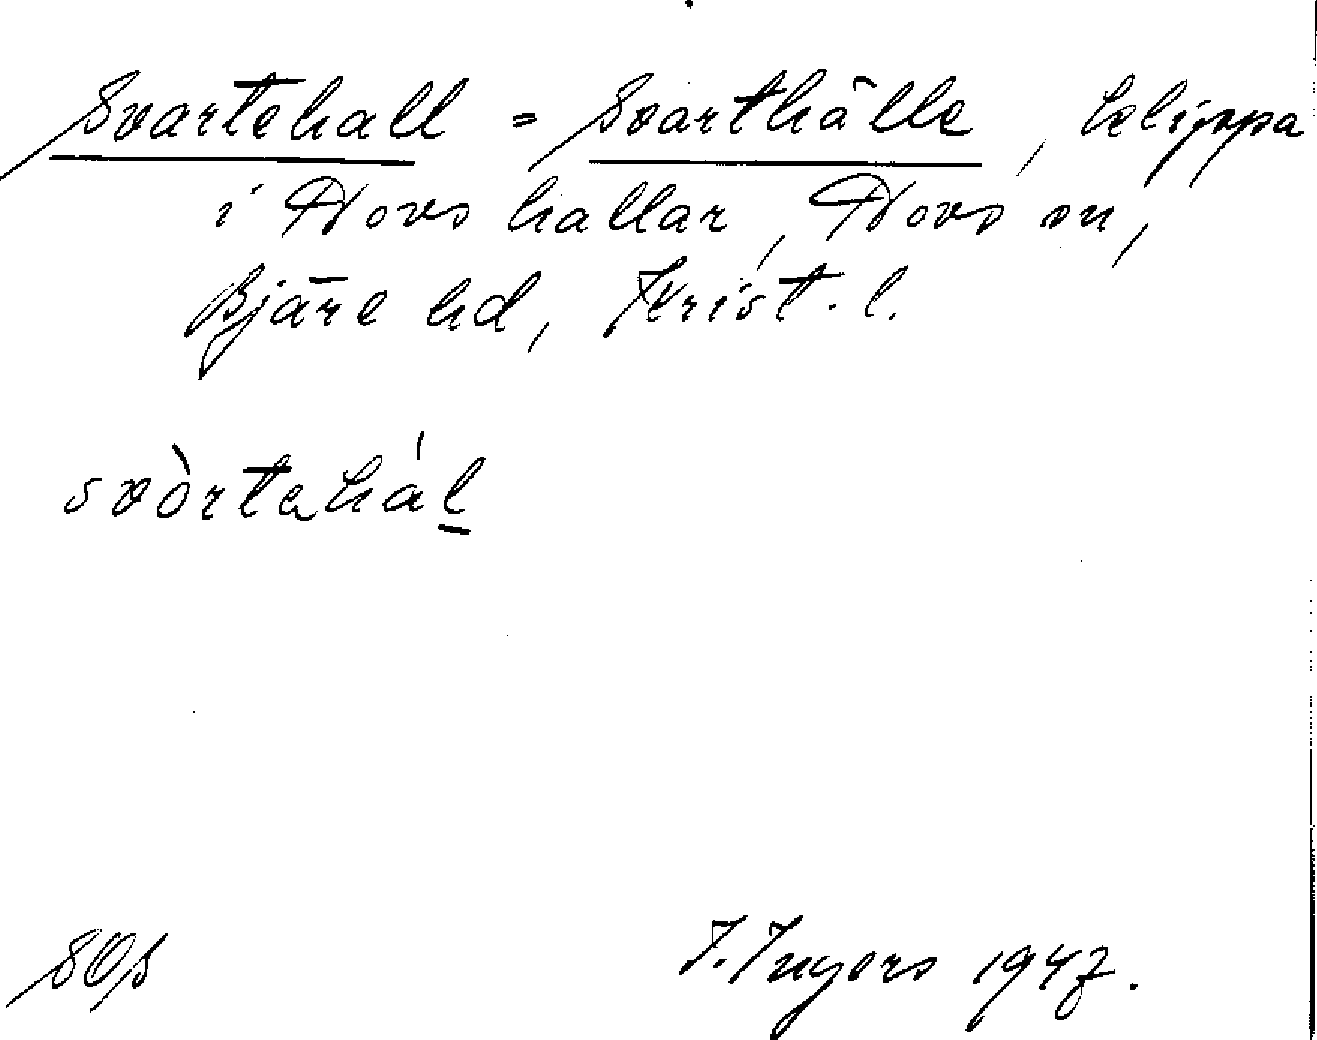 Svartehall = Svarthälle, klippa
i Hovs hallar, Hovs sn,
Bjäre hd, Krist. l.
svòrtahál
I. Ingers 1947.